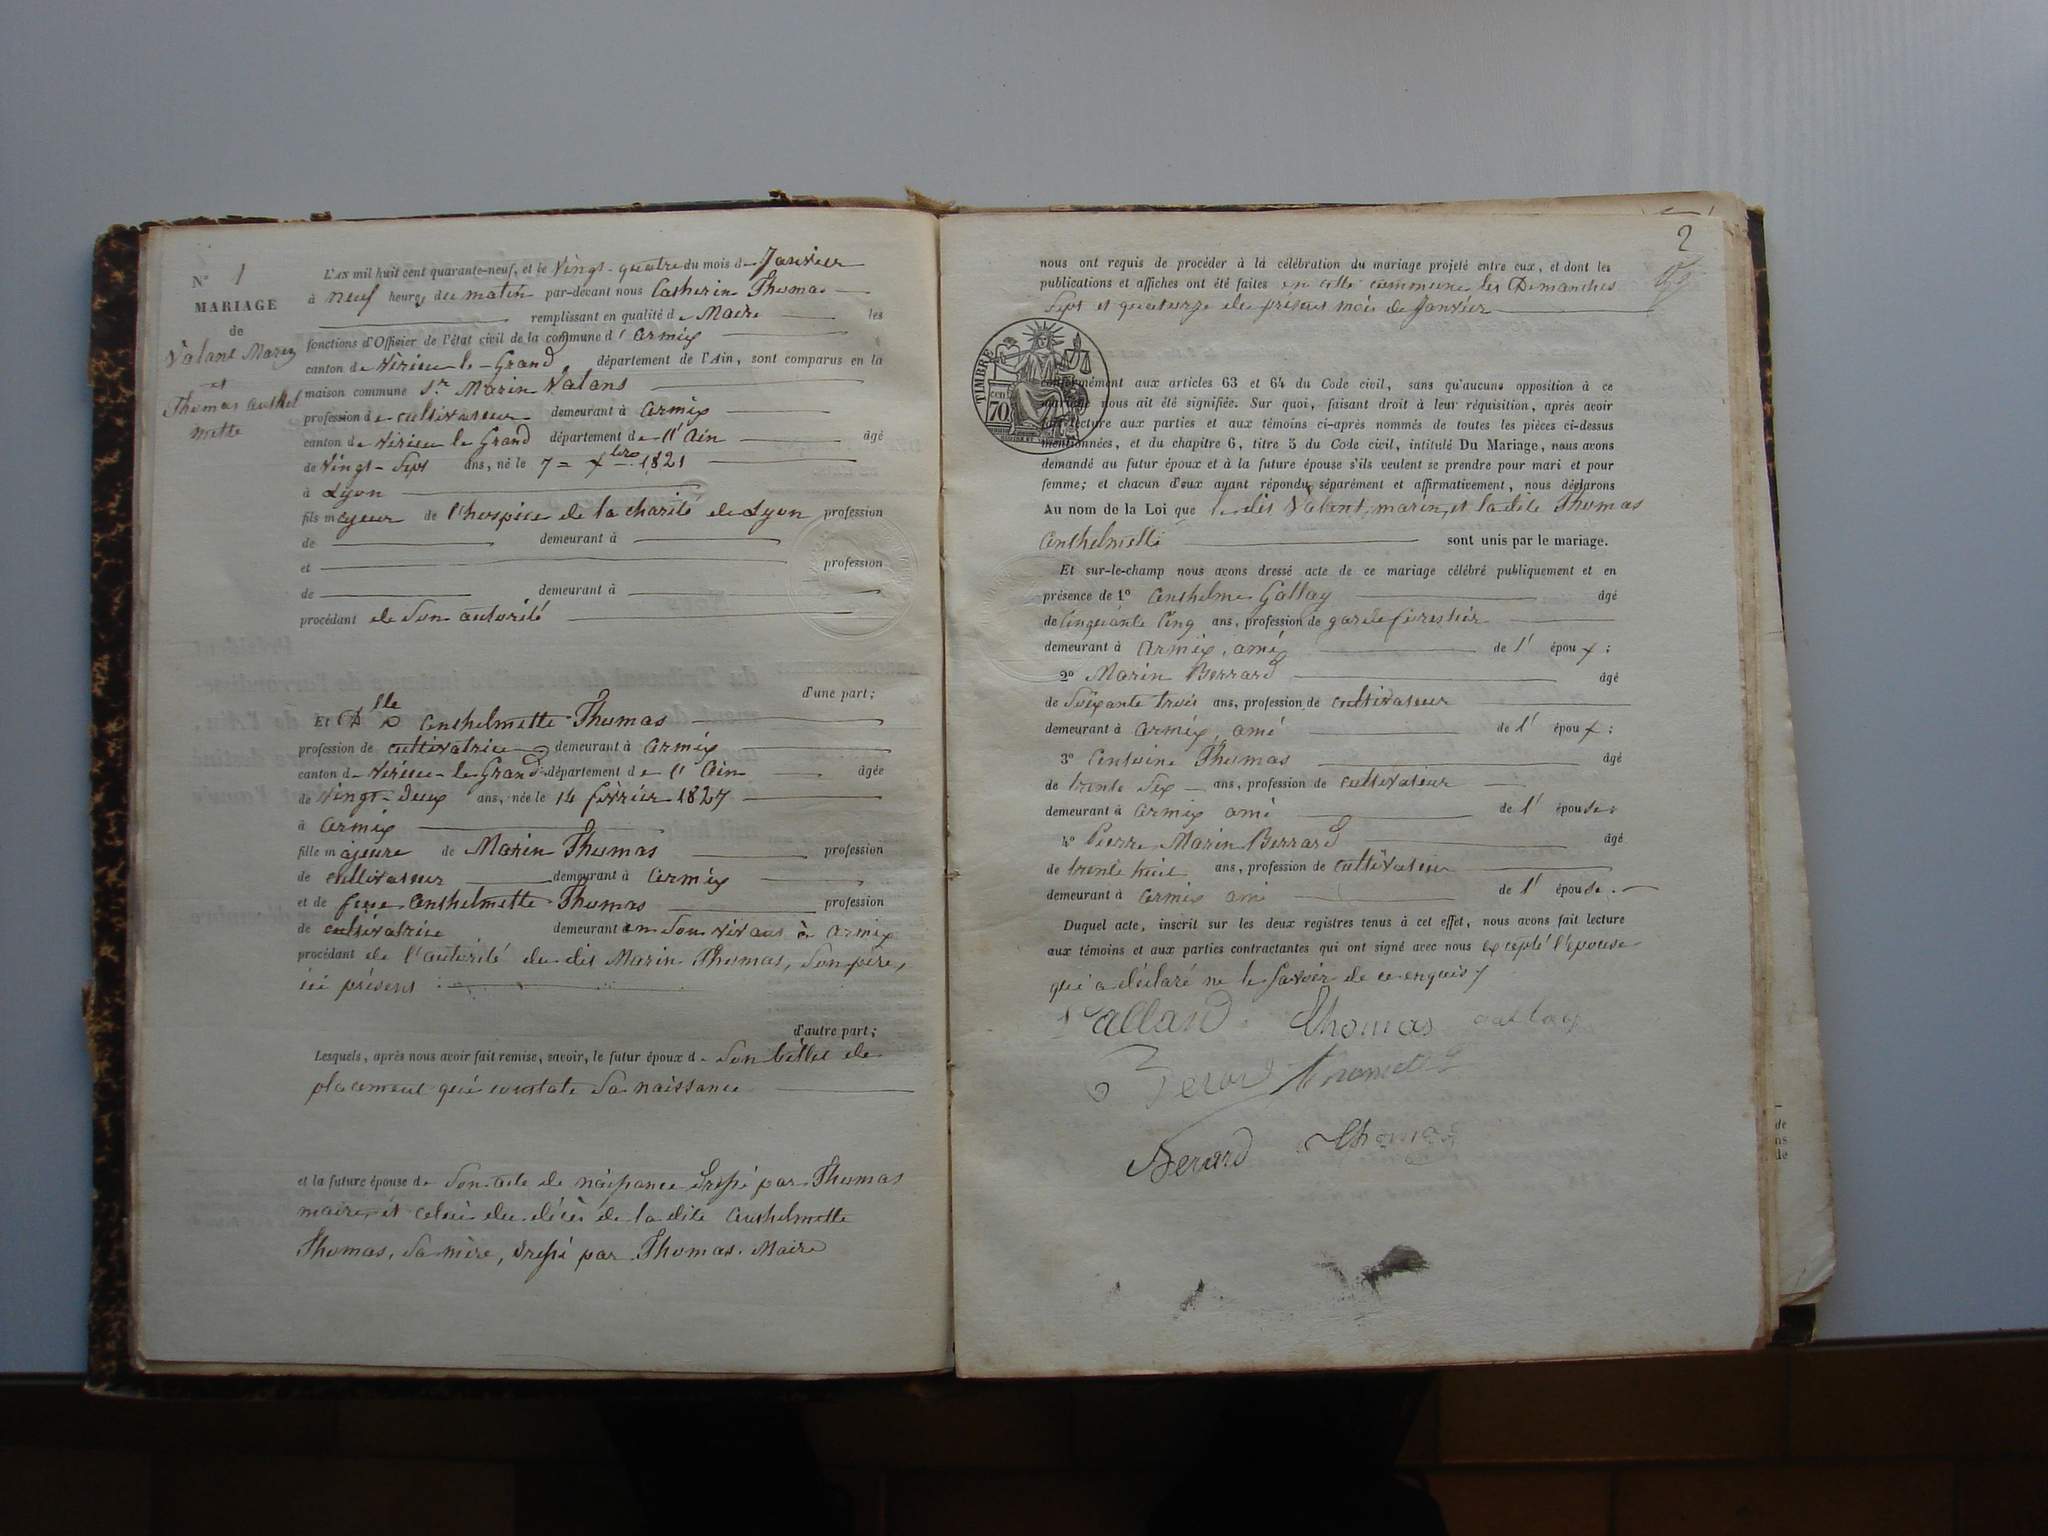 N° 1
MARIAGE
de
Valant Marin
et
Thomas anthel
mette
L'AN mil huit cent quarante-neuf, et le vingt-quatre du mois de Janvier
à neuf heures du matin par-devant nous Catherin Thomas
remplissant en qualité de Maire les
fonctions d'Officier de l'état civil de la commune d'armix
canton de Virieu-le-Grand département de l'Ain, sont comparus en la
maison commune Sr Marin Valans
profession de cultivateur demeurant à armix
canton de virieu le Grand département de l'ain âgé
de vingt-sept ans, né le 7 = xbre 1821
à Lyon
fils majeur de l'hospice de la charité de Lyon profession
de demeurant à
et profession
de demeurant à
procédant de son autorité
d'une part;
Et Dlle anthelmette Thomas
profession de cultivatrice demeurant à armix
canton de virieu-le-Grand département de l'ain âgée
de vingt-deux ans, née le 14 février 1827
à armix
fille majeure de Marin Thomas profession
de cultivateur demeurant à armix
et de feue anthelmette Thomas profession
de cultivatrice demeurant en son vivant à armix
procédant de l'autorité du dit Marin Thomas, son père,
ici présent
d'autre part;
Lesquels, après nous avoir fait remise, savoir, le futur époux de son billet de
placement qui constate sa naissance
et la future épouse de son acte de naissance dressé par Thomas
maire, et celui du décès de la dite anthelmette
Thomas, sa mère, dressé par Thomas. Maire
2
nous ont requis de procéder à la célébration du mariage projeté entre eux, et dont les
publications et affiches ont été faites en cette commune les Dimanches
sept et quatorze du présent mois de Janvier
TIMBRE
70
conformément aux articles 63 et 64 du Code civil, sans qu'aucune opposition à ce
mariage nous ait été signifiée. Sur quoi, faisant droit à leur réquisition, après avoir
fait lecture aux parties et aux témoins ci-après nommés de toutes les pièces ci-dessus
mentionnées, et du chapitre 6, titre 5 du Code civil, intitulé Du Mariage, nous avons
demandé au futur époux et à la future épouse s'ils veulent se prendre pour mari et pour
femme; et chacun d'eux ayant répondu séparément et affirmativement, nous déclarons
Au nom de la Loi que le dit Valent, marin, et la dite Thomas
anthelmette sont unis par le mariage.
Et sur-le-champ nous avons dressé acte de ce mariage célébré publiquement et en
présence de 1° anthelme Gallay âgé
de cinquante cinq ans, profession de garde forestier
demeurant à armix, ami de l'époux;
2° Marin Berrard âgé
de soixante trois ans, profession de cultivateur
demeurant à armix, ami de l'époux;
3° antoine Thomas âgé
de trente six ans, profession de cultivateur
demeurant à armix ami de l'épouse;
4° Pierre Marin Berrard âgé
de trente huit ans, profession de cultivateur
demeurant à armix ami de l'épouse.
Duquel acte, inscrit sur les deux registres tenus à cet effet, nous avons fait lecture
aux témoins et aux parties contractantes qui ont signé avec nous excepté l'épouse
qui a déclaré ne le savoir de ce enquis
Valland Thomas gallay
Berard
Berard Thomas